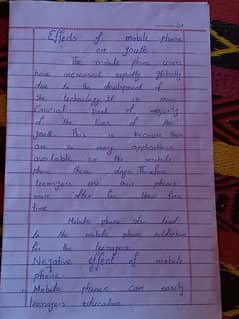 Effects of mobile phone
on youth
The mobile phone users
have increased rapidly globally
due to the development of
the technology. It is now
Crucial part of majority
of the lives of the
youth. This is because there
are so many applications
available on the mobile
phone these days. Therefore
teenagers use their phones
more often for their free
time.
Mobile phone also lead
to the mobile phone addiction
for the teenagers.
Negative effect of mobile
phone
Mobile phones can easily
teenagers education